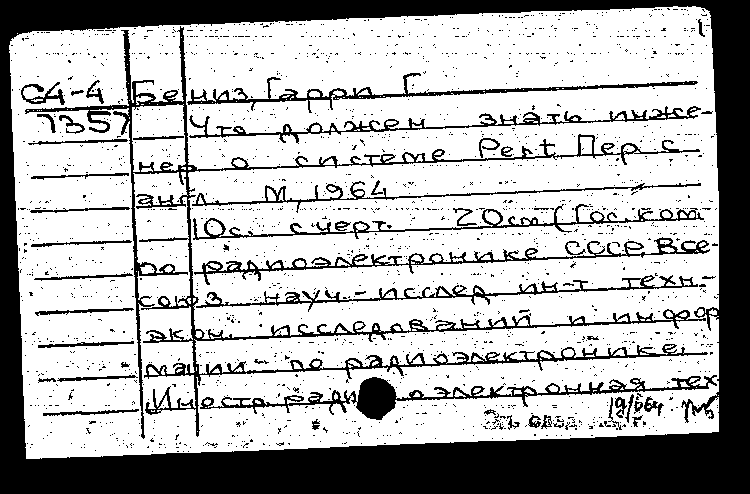 С4-4 Бениз, Гарри Г
7357 Что должен знать инже-
нер о системе Pert Пер с
англ. М, 1964
10с. с черт. 20см (Гос. ком
по радиоэлектронике СССР. Все-
союз. науч.-исслед ин-т техн.-
экон. исследований и инфор
мации по радиоэлектронике.
Иностр. радиоэлектронная тех